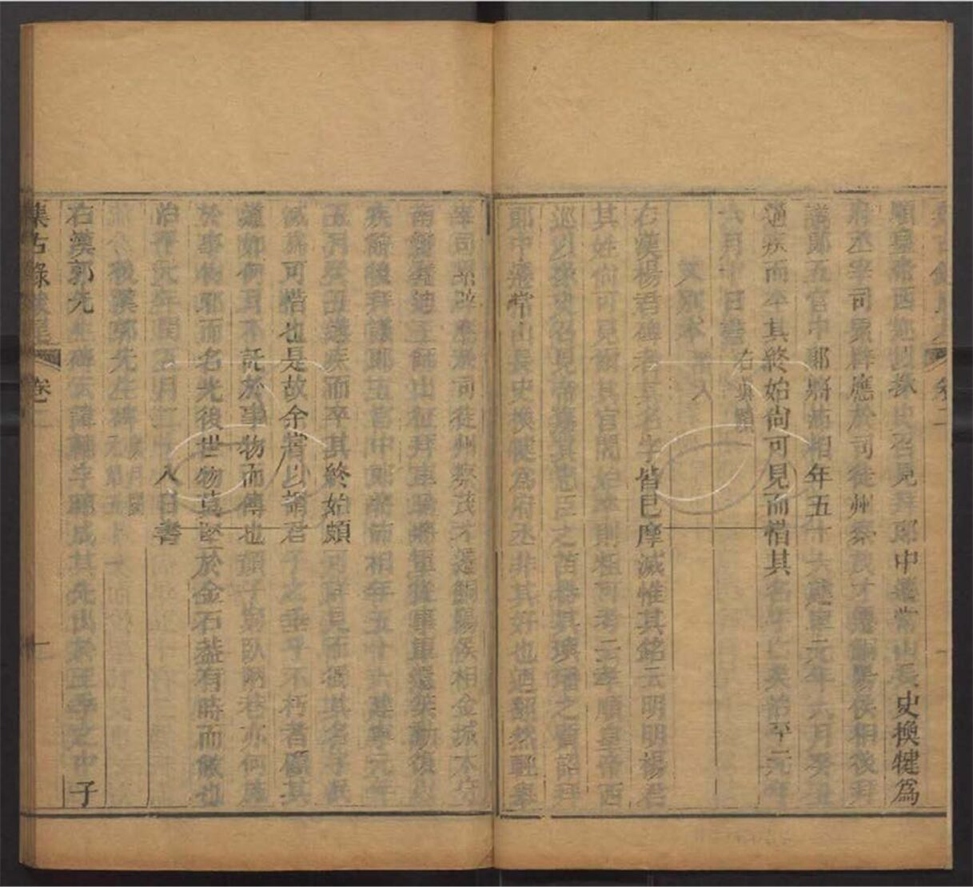 順皇帝西巡以掾史召見拜郎中遷常山長史換犍為
府丞宰司累辟應於司徒州察茂才遷鮦陽侯相後拜
議郎五官中郎將沛相年五十六建寧元年六月癸丑
遘疾而卒其終始尚可見而惜其名字亡矣治平元年
六月十日書
右真蹟
又別本
右漢楊君碑者其名字皆已摩滅惟其銘云明明楊君
其姓尚可見爾其官閥始卒則粗可考云孝順皇帝西
巡以掾史召見帝嘉其忠臣之苗器其璵璠之質詔拜
郎中遷常山長史換犍為府丞非其好也迺翻然輕舉
宰司累辟應於司徒州察茂才遷鮦陽侯相金城太守
南蠻蠢迪王師出征拜車騎將軍從事軍還策勳復以
疾辭後拜議郎五官中郎將沛相年五十六建寧元年
五月癸丑遘疾而卒其終始頗可詳見而獨其名字泯
滅為可惜也是故余嘗以謂君子之垂乎不朽者顧其
道如何耳不託於事物而傳也顏子窮臥陋巷亦何施
於事物邪而名光後世物莫堅於金石蓋有時而敝也
治平元年閏五月二十八日書
後漢郭先生碑
右漢郭先生碑云諱輔字甫成其先出王季之中子
集古錄跋尾 卷二